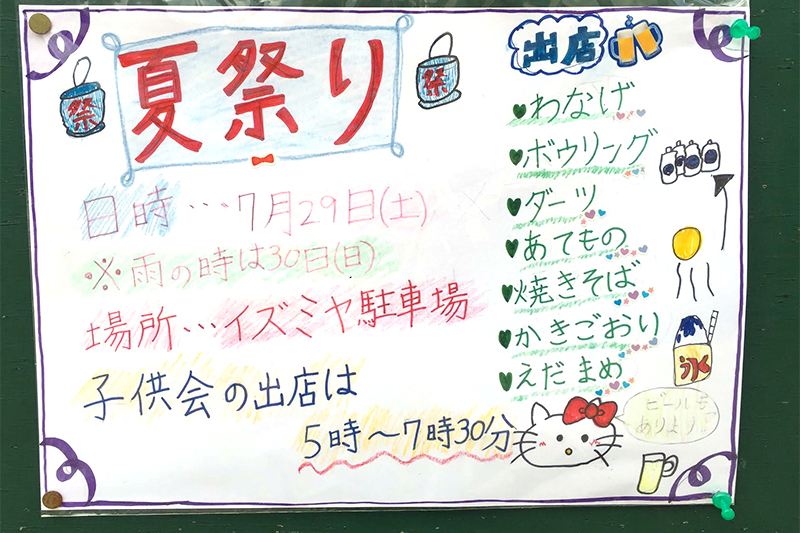 夏祭り
祭
祭
日時…7月29日(土)
※雨の時は30日(日)
場所…イズミヤ駐車場
子供会の出店は
5時～7時30分
出店
♥わなげ
♥ボウリング
♥ダーツ
♥あてもの
♥焼きそば
♥かきごおり
♥えだまめ
氷
ビールも
ありより♪